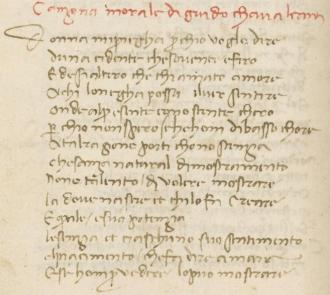 Canzona morale di guido chaualcanti
Donna mipriegha p chio voglo dire
duna cidente chesouente efero
Edesi altero che chiamato amore
Sichi lonegha possa iluer sentire
Onde alpresente conoscente chero
p chio nonspero chehom dibasso chore
Atal ragone porti chonoscenza
chesanza natural dimostramento
None talento di volere mostrare
La doue nascie et chilofa creare
E quale e sua potenza
lesenza et ciaschuno suo
elpiacimento chefa dire amare
Esse hom p vedere lopuo mostrare